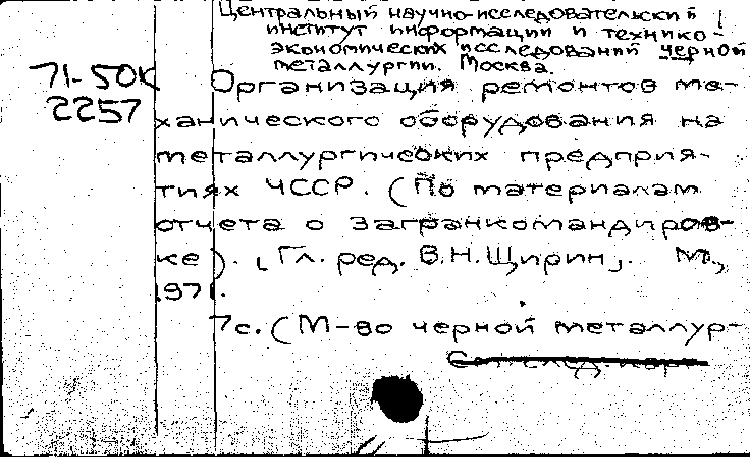 Центральный научно-исследовательский
институт информации и технико-
экономических исследований черной
металлургии. Москва.
71-50К
2257
Организация ремонтов ме-
ханического оборудования на
металлургических предприя-
тиях ЧССР. (По материалам
отчета о загранкомандиров-
ке). [Гл. ред. В.Н. Щирин]. М.,
1971.
7с. (М-во черной металлур-
См. след. карт